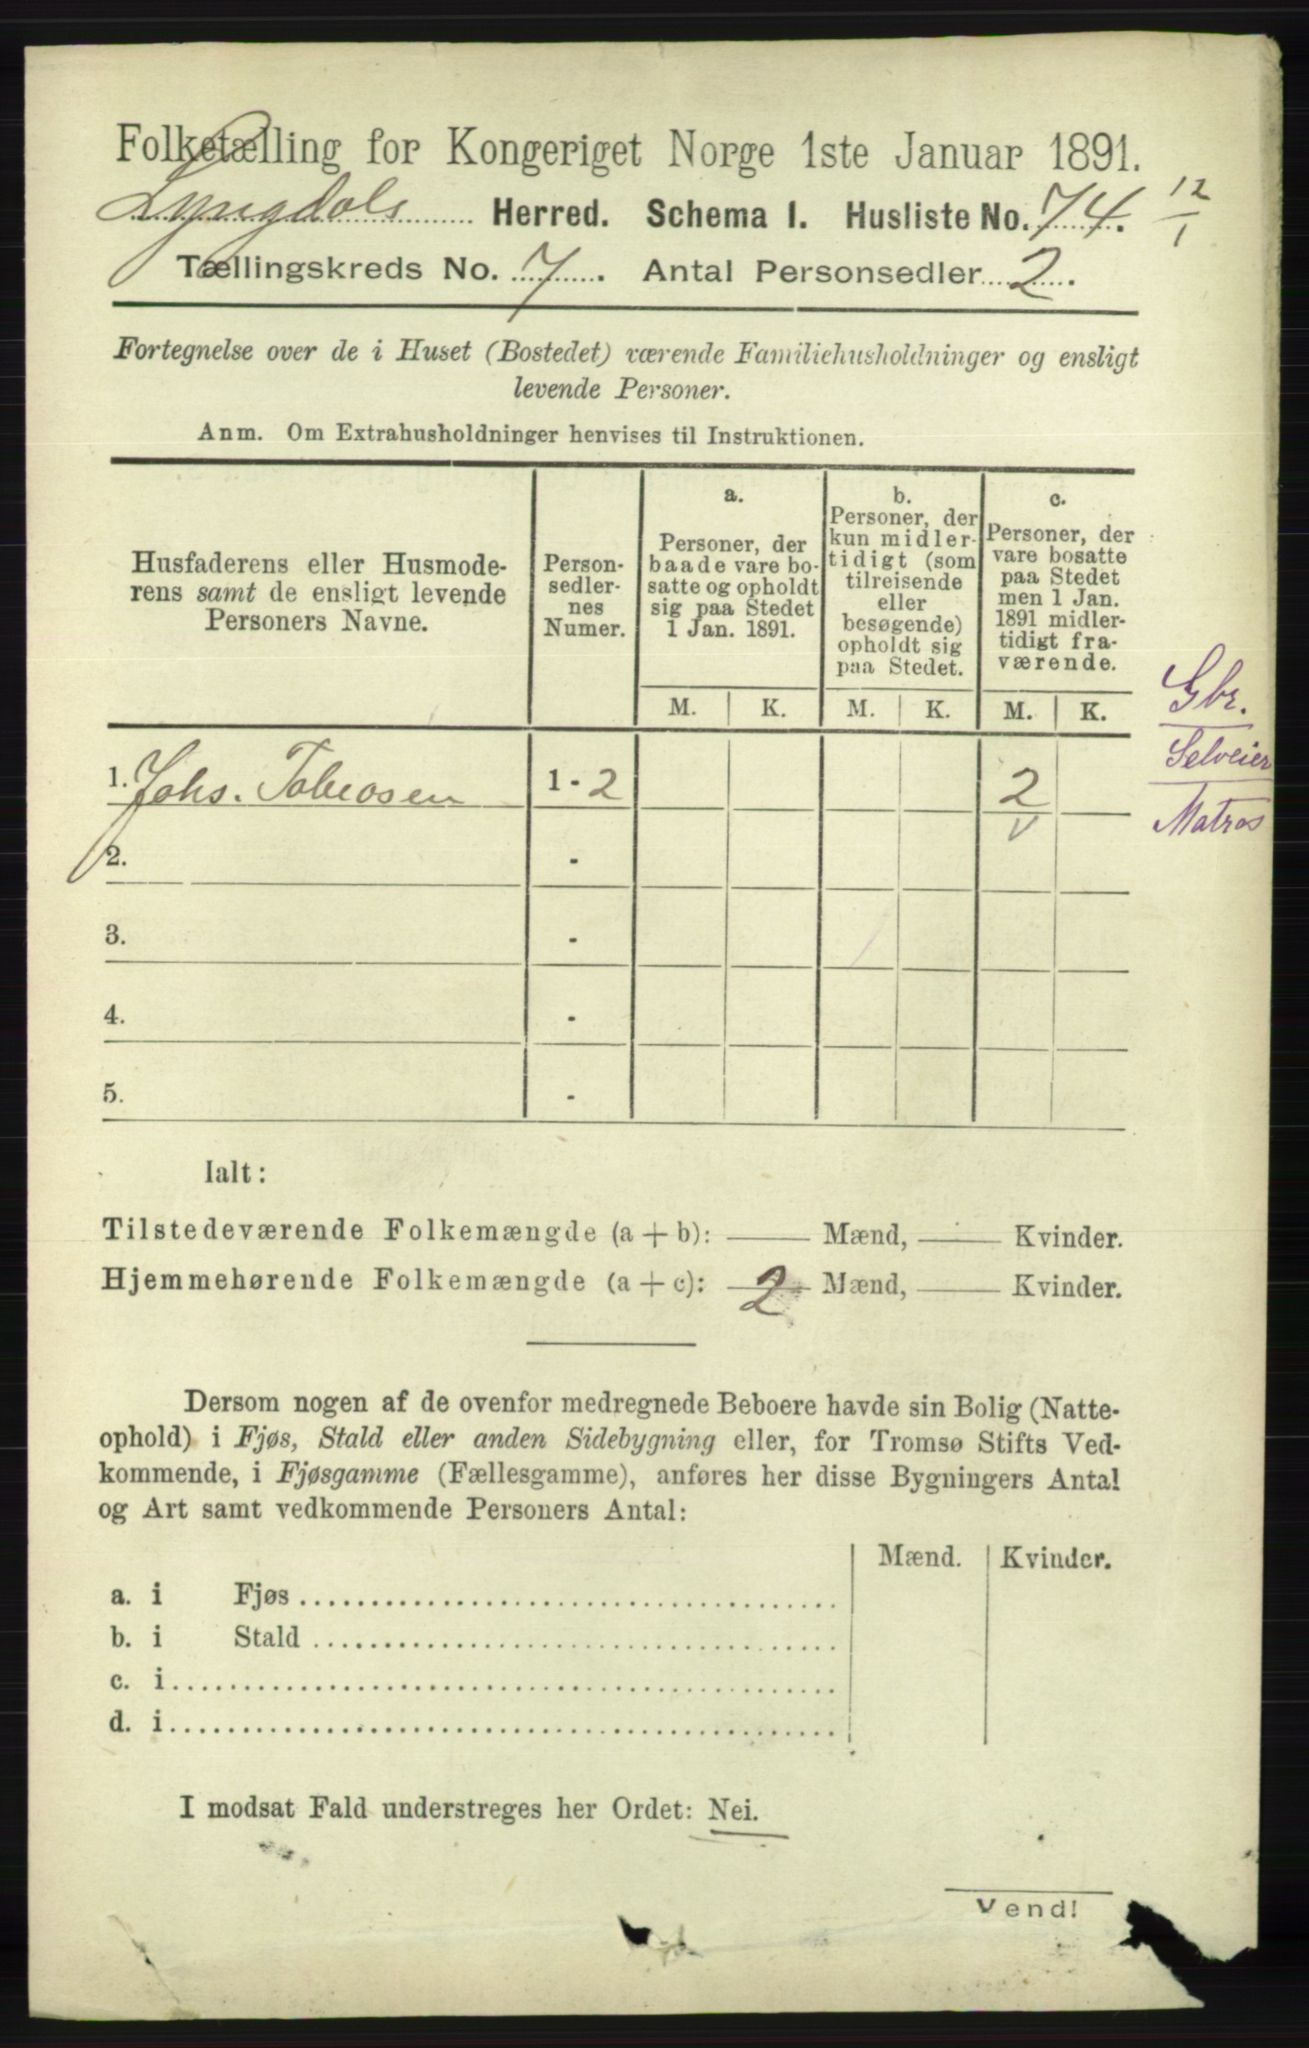 Folketælling for Kongeriget Norge 1ste Januar 1891.
Lyngdals Herred. Schema 1. Husliste No. 74. 12/1
Tællingskreds No. 7. Antal Personsedler 2.
Fortegnelse over de i Huset (Bostedet) værende Familiehusholdninger og ensligt
levende Personer.
Anm. Om Extrahusholdninger henvises til Instruktionen.
Husfaderens eller Husmode-
rens samt de ensligt levende
Personers Navne.
Person-
sedler-
nes
Numer.
a.
Personer, der
baade vare bo-
satte og opholdt
sig paa Stedet
1 Jan. 1891.
b.
Personer, der
kun midler-
tidigt (som
tilreisende
eller
besøgende)
opholdt sig
paa Stedet.
c.
Personer, der
vare bosatte
paa Stedet
men 1 Jan.
1891 midler-
tidigt fra-
værende.
M. K. M. K. M. K.
Gbr.
Selveier
Matros
1. Johs. Tobiasen 1 - 2 2
2. -
3. -
4. -
5. -
Ialt:
Tilstedeværende Folkemængde (a + b): — Mænd, — Kvinder.
Hjemmehørende Folkemængde (a + c): 2 Mænd, — Kvinder.
Dersom nogen af de ovenfor medregnede Beboere havde sin Bolig (Natte-
ophold) i Fjøs, Stald eller anden Sidebygning eller, for Tromsø Stifts Ved-
kommende, i Fjøsgamme (Fællesgamme), anføres her disse Bygningers Antal
og Art samt vedkommende Personers Antal:
Mænd. Kvinder.
a. i Fjøs
b. i Stald
c. i
d. i
I modsat Fald understreges her Ordet: Nei.
Vend!